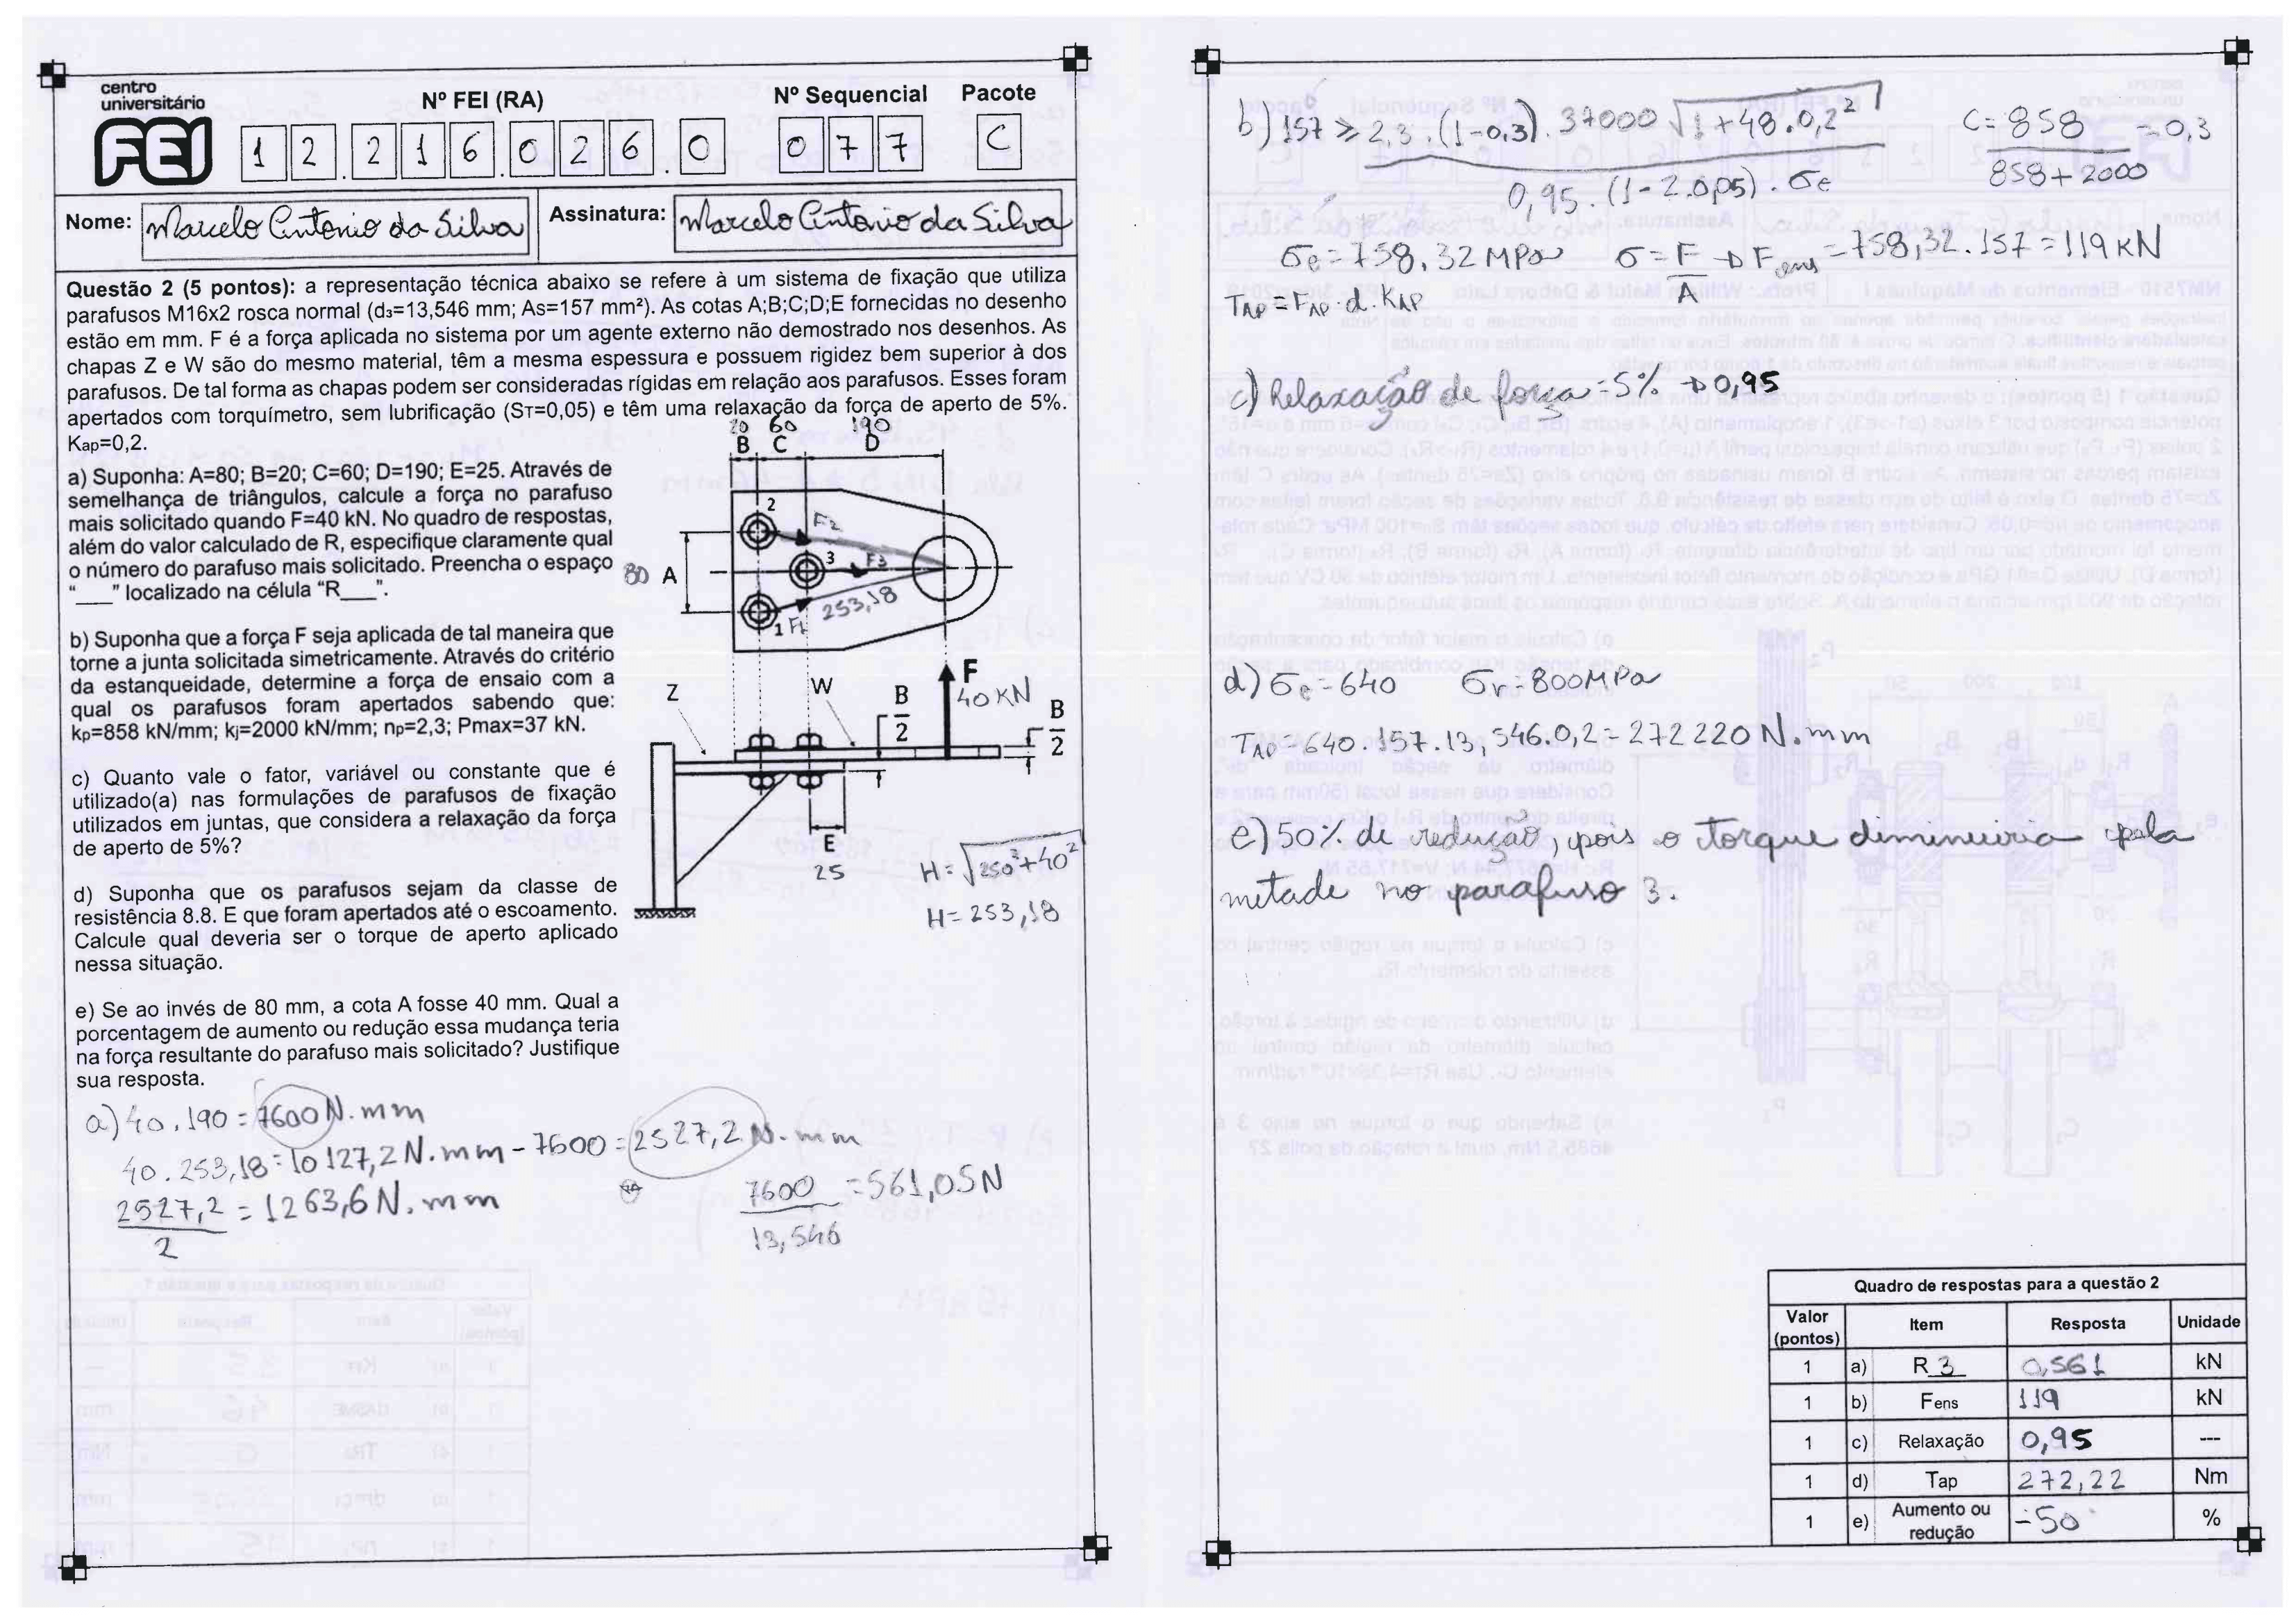 centro
universitário
FEI
Nº FEI (RA)
Nº Sequencial
Pacote
12.216.026.0
077
C
Nome: Marcelo Antonio da Silva
Assinatura: Marcelo Antonio da Silva
Questão 2 (5 pontos): a representação técnica abaixo se refere à um sistema de fixação que utiliza
parafusos M16x2 rosca normal (d₃=13,546 mm; As=157 mm²). As cotas A;B;C;D;E fornecidas no desenho
estão em mm. F é a força aplicada no sistema por um agente externo não demostrado nos desenhos. As
chapas Z e W são do mesmo material, têm a mesma espessura e possuem rigidez bem superior à dos
parafusos. De tal forma as chapas podem ser consideradas rígidas em relação aos parafusos. Esses foram
apertados com torquímetro, sem lubrificação (Sᴛ=0,05) e têm uma relaxação da força de aperto de 5%.
Kap=0,2.
a) Suponha: A=80; B=20; C=60; D=190; E=25. Através de
semelhança de triângulos, calcule a força no parafuso
mais solicitado quando F=40 kN. No quadro de respostas,
além do valor calculado de R, especifique claramente qual
o número do parafuso mais solicitado. Preencha o espaço
“___” localizado na célula “R___”.
b) Suponha que a força F seja aplicada de tal maneira que
torne a junta solicitada simetricamente. Através do critério
da estanqueidade, determine a força de ensaio com a
qual os parafusos foram apertados sabendo que:
kp=858 kN/mm; kj=2000 kN/mm; np=2,3; Pmax=37 kN.
c) Quanto vale o fator, variável ou constante que é
utilizado(a) nas formulações de parafusos de fixação
utilizados em juntas, que considera a relaxação da força
de aperto de 5%?
d) Suponha que os parafusos sejam da classe de
resistência 8.8. E que foram apertados até o escoamento.
Calcule qual deveria ser o torque de aperto aplicado
nessa situação.
e) Se ao invés de 80 mm, a cota A fosse 40 mm. Qual a
porcentagem de aumento ou redução essa mudança teria
na força resultante do parafuso mais solicitado? Justifique
sua resposta.
20 60 190
B C D
2
F2
80 A
3 F3
253,18
1 F1
Z
W
F
40 KN
B
2
B
2
E
25
H=√250²+40²
H=253,18
a) 40.190=7600N.mm
40.253,18=10127,2N.mm-7600=2527,2N.mm
2527,2 = 1263,6N.mm
2
7600 =561,05N
13,546
b) 157 ≥ 2,3.(1-0,3).37000√1+48.0,2²
0,95.(1-2.0,05).σe
C=858 =0,3
858+2000
σe=758,32MPa σ=F → Fens=758,32.157=119KN
A
TAP=FAP.d.KAP
c) Relaxação de força=5% → 0,95
d) σe=640 σr=800MPa
TAP=640.157.13,546.0,2=272220N.mm
e) 50% de redução, pois o torque diminuiria pela
metade no parafuso 3.
Quadro de respostas para a questão 2
Valor (pontos) Item Resposta Unidade
1 a) R 3 0,561 kN
1 b) Fens 119 kN
1 c) Relaxação 0,95 ---
1 d) Tap 272,22 Nm
1 e) Aumento ou redução -50 %